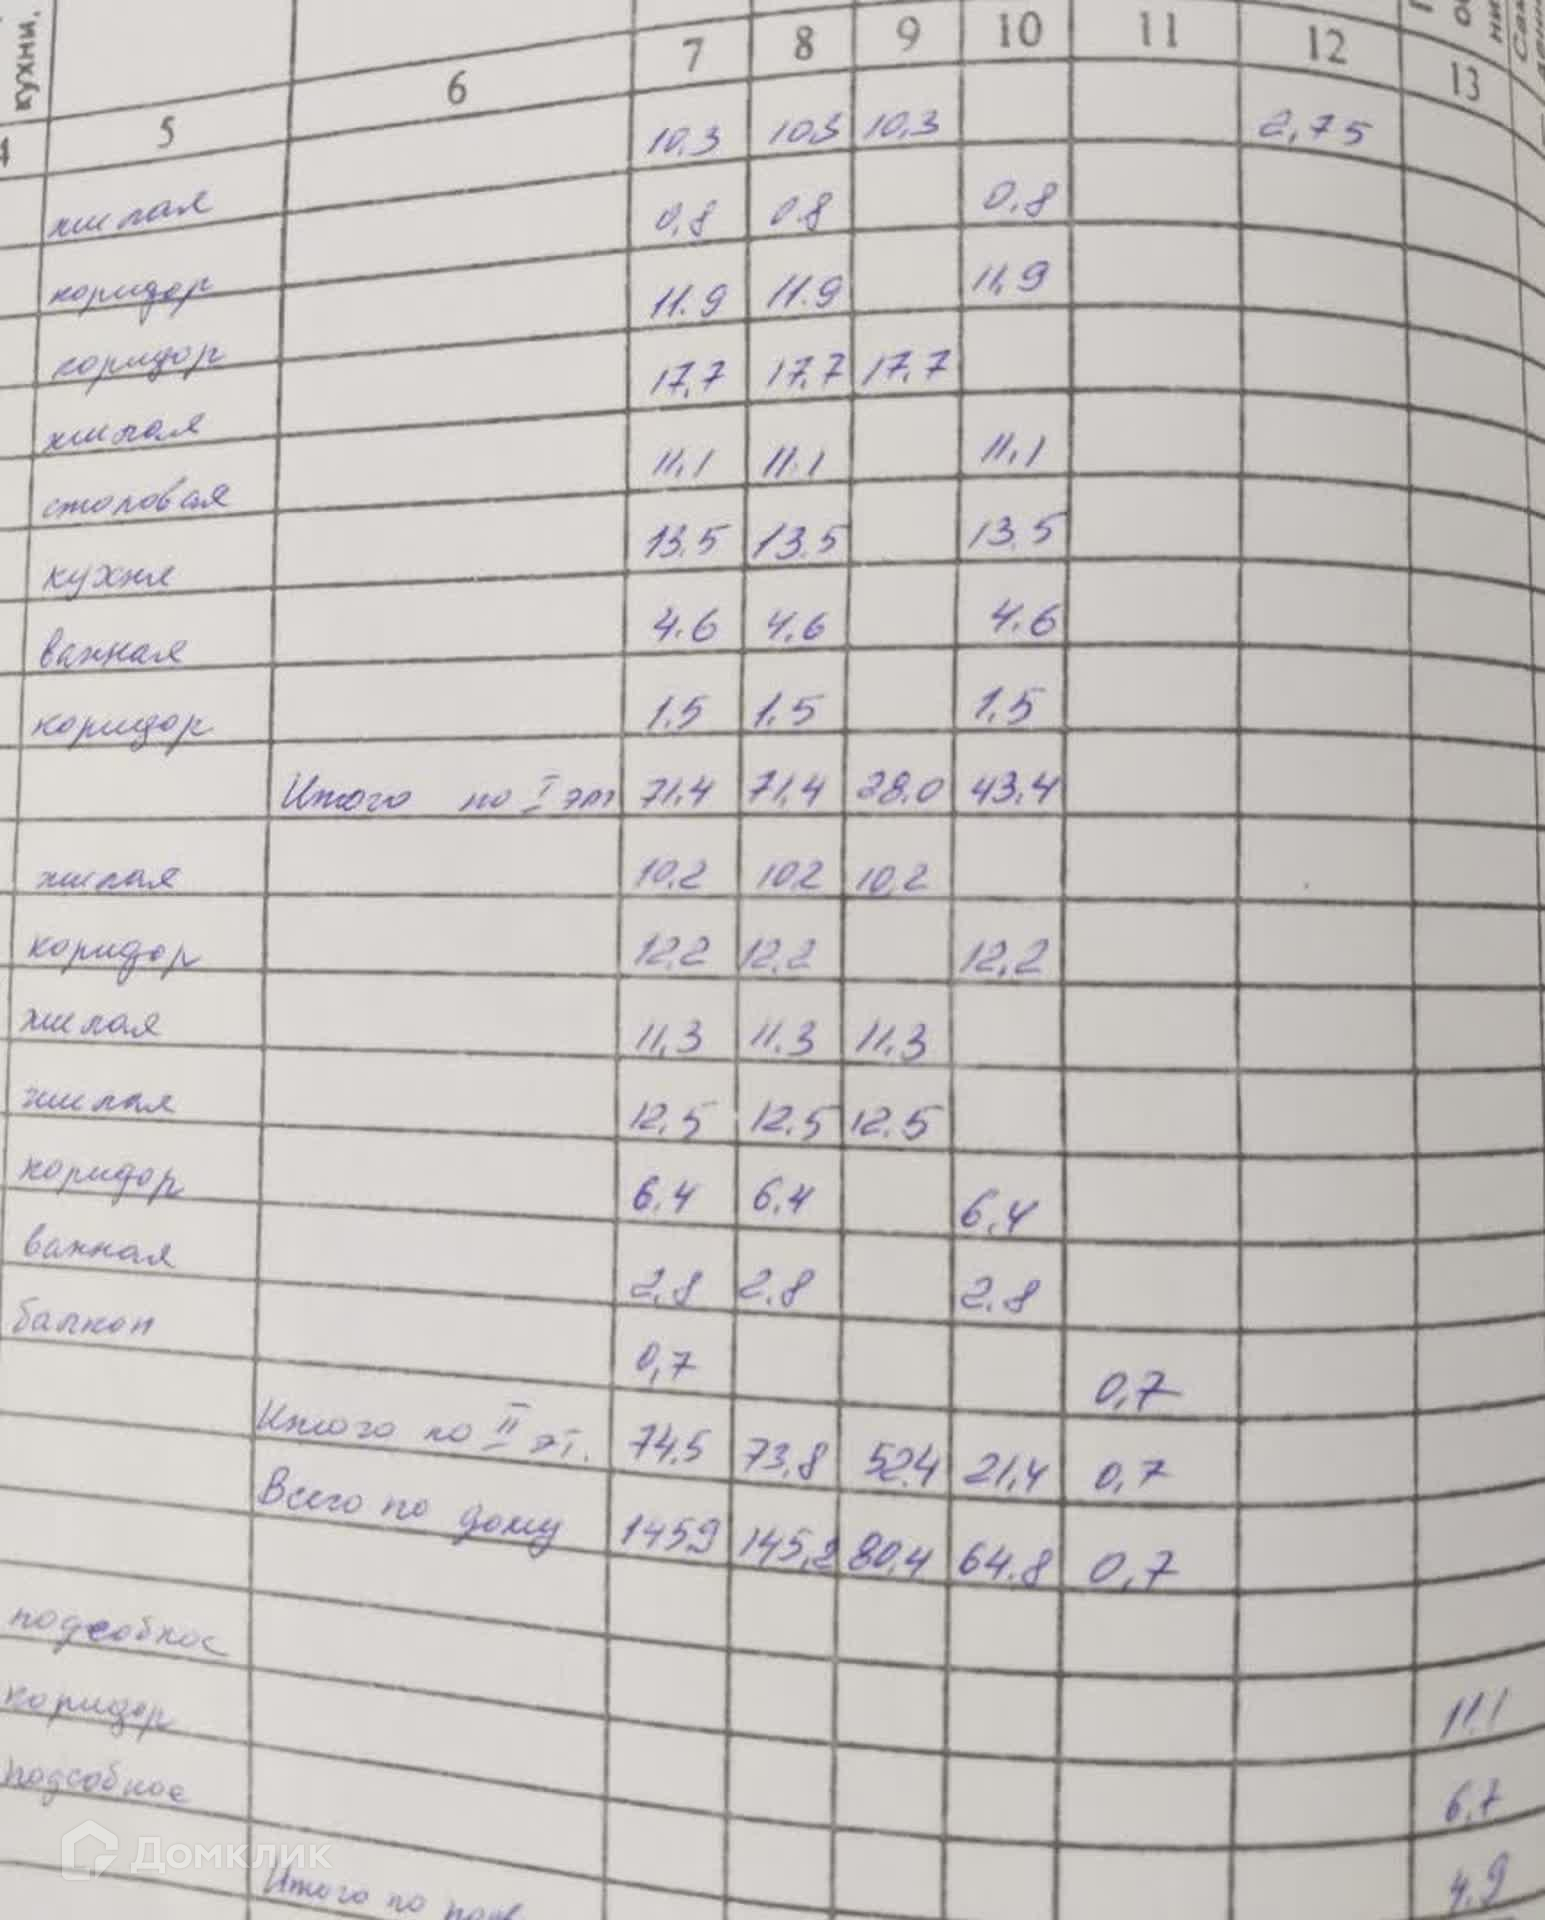 кухни,
4 5 6 7 8 9 10 11 12 13
жилая 10,3 10,3 10,3 2,75
коридор 0,8 0.8 0,8
коридор 11.9 11.9 11,9
жилая 17,7 17,7 17,7
столовая 11,1 11.1 11,1
кухня 13.5 13.5 13.5
ванная 4.6 4.6 4.6
коридор 1.5 1.5 1.5
Итого по I эт 71.4 71,4 28.0 43.4
жилая 10.2 10.2 10.2
коридор 12.2 12.2 12.2
жилая 11,3 11.3 11.3
жилая 12.5 12.5 12.5
коридор 6.4 6.4 6.4
ванная 2.8 2.8 2.8
балкон 0,7 0,7
Итого по II эт. 74.5 73,8 52.4 21,4 0,7
Всего по дому 145,9 145,2 80,4 64.8 0,7
подсобное 11.1
коридор 6,7
подсобное 4,9
Итого по подв.
Домклик